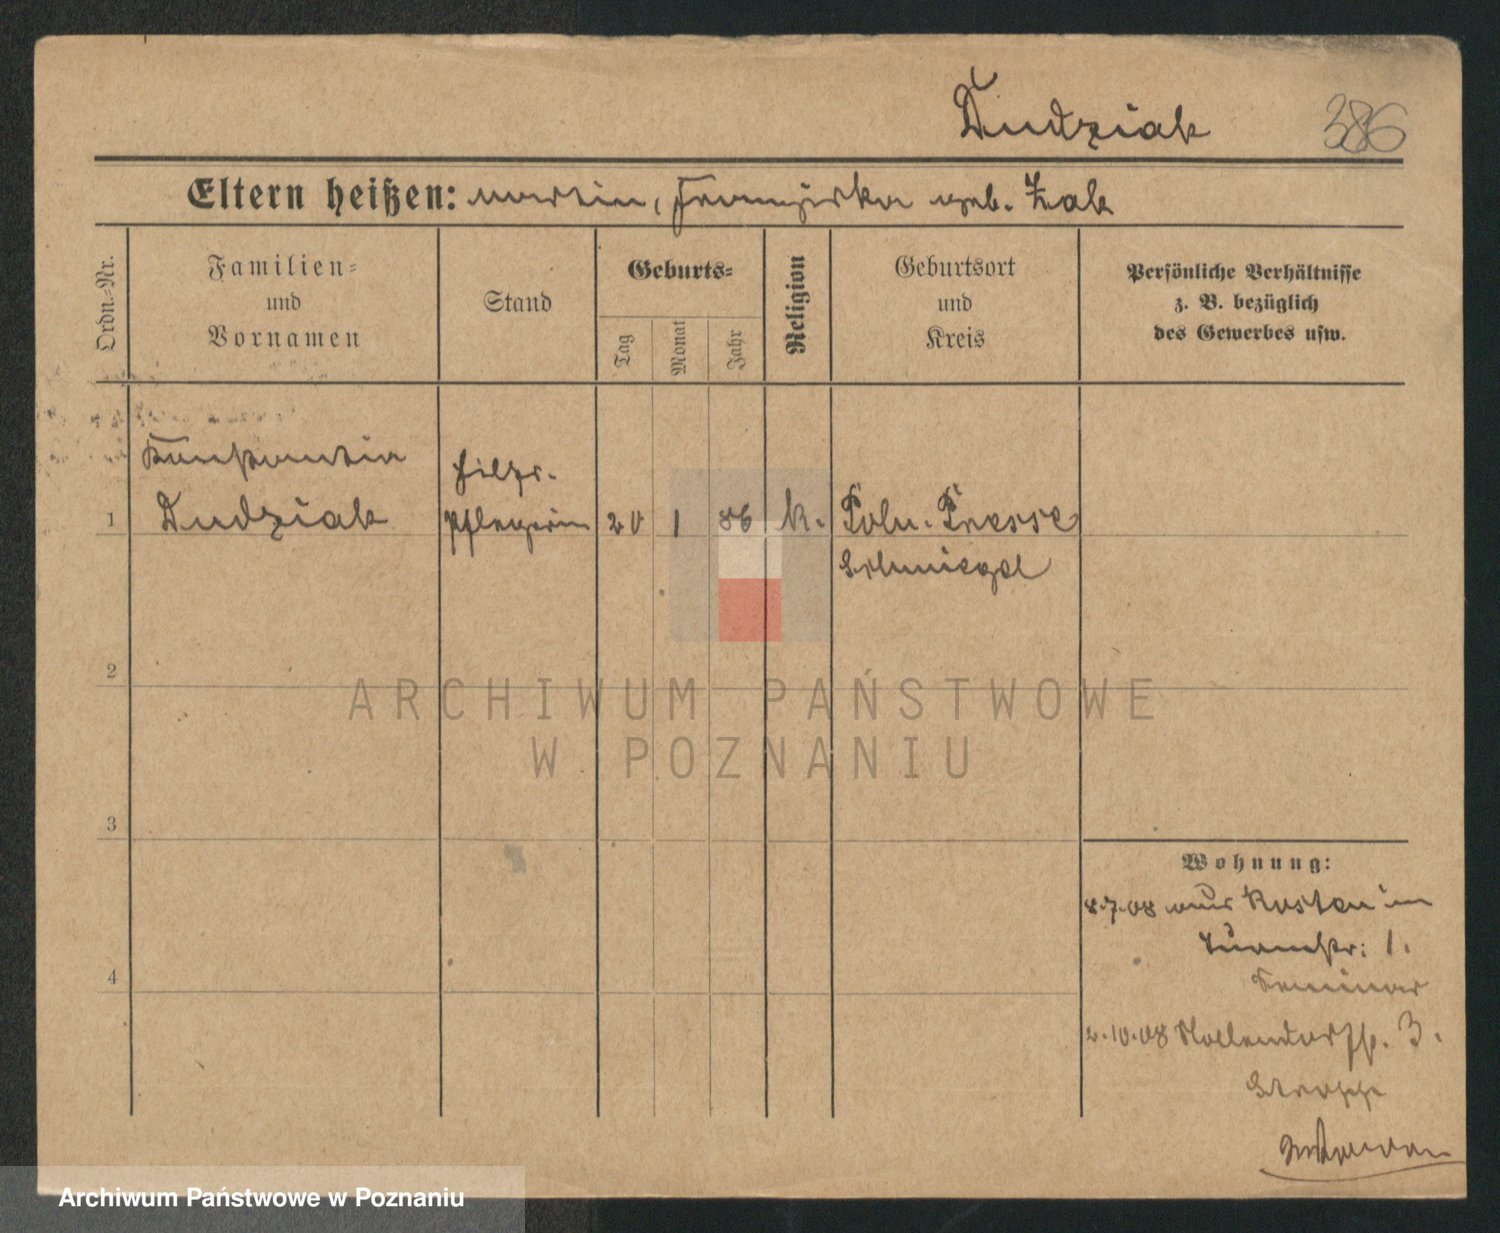 Dudziak 386
Eltern heißen: Martin, Franziska geb. Zak
Ordn.-Nr.
Familien-
und
Vornamen
Stand
Geburts-
Tag
Monat
Jahr
Religion
Geburtsort
und
Kreis
Persönliche Verhältnisse
z. B. bezüglich
des Gewerbes usw.
Konstantia
Hilfs-
1 Dudziak pflegerin 20 1 86 k. Poln. Presse
Schmiegel
2
ARCHIWUM PAŃSTWOWE
W POZNANIU
3
Wohnung:
8.7.08 aus Kosten in
Turmstr: 1.
4
Seminar
2.10.08 Nollendorfstr. 3.
Archiwum Państwowe w Poznaniu